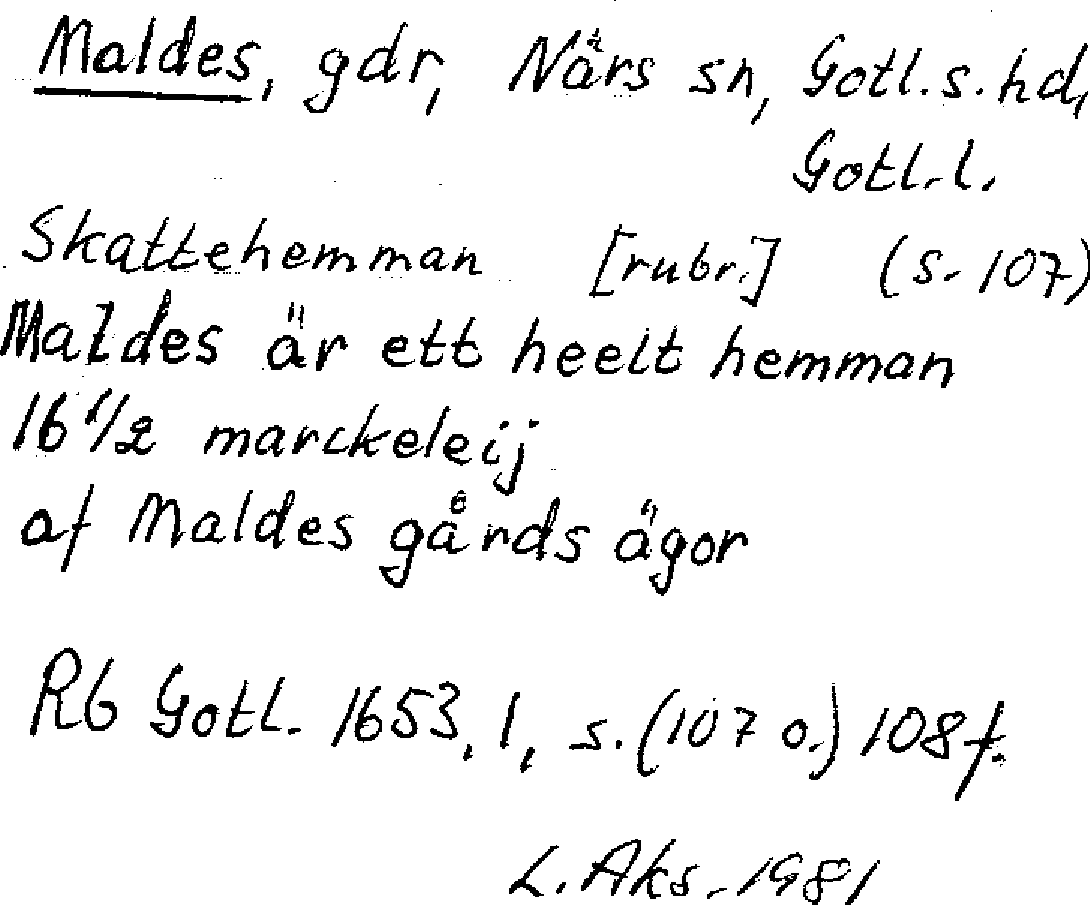 Maldes, gdr, Närs sn, Gotl. s. hd,
Gotl. l.
Skattehemman [rubr.] (s. 107)
Maldes är ett heelt hemman
16 1/2 marckeleij
af Maldes gårds ägor
Rb Gotl. 1653, 1, s. (107 o.) 108 f.
L. Aks. 1981